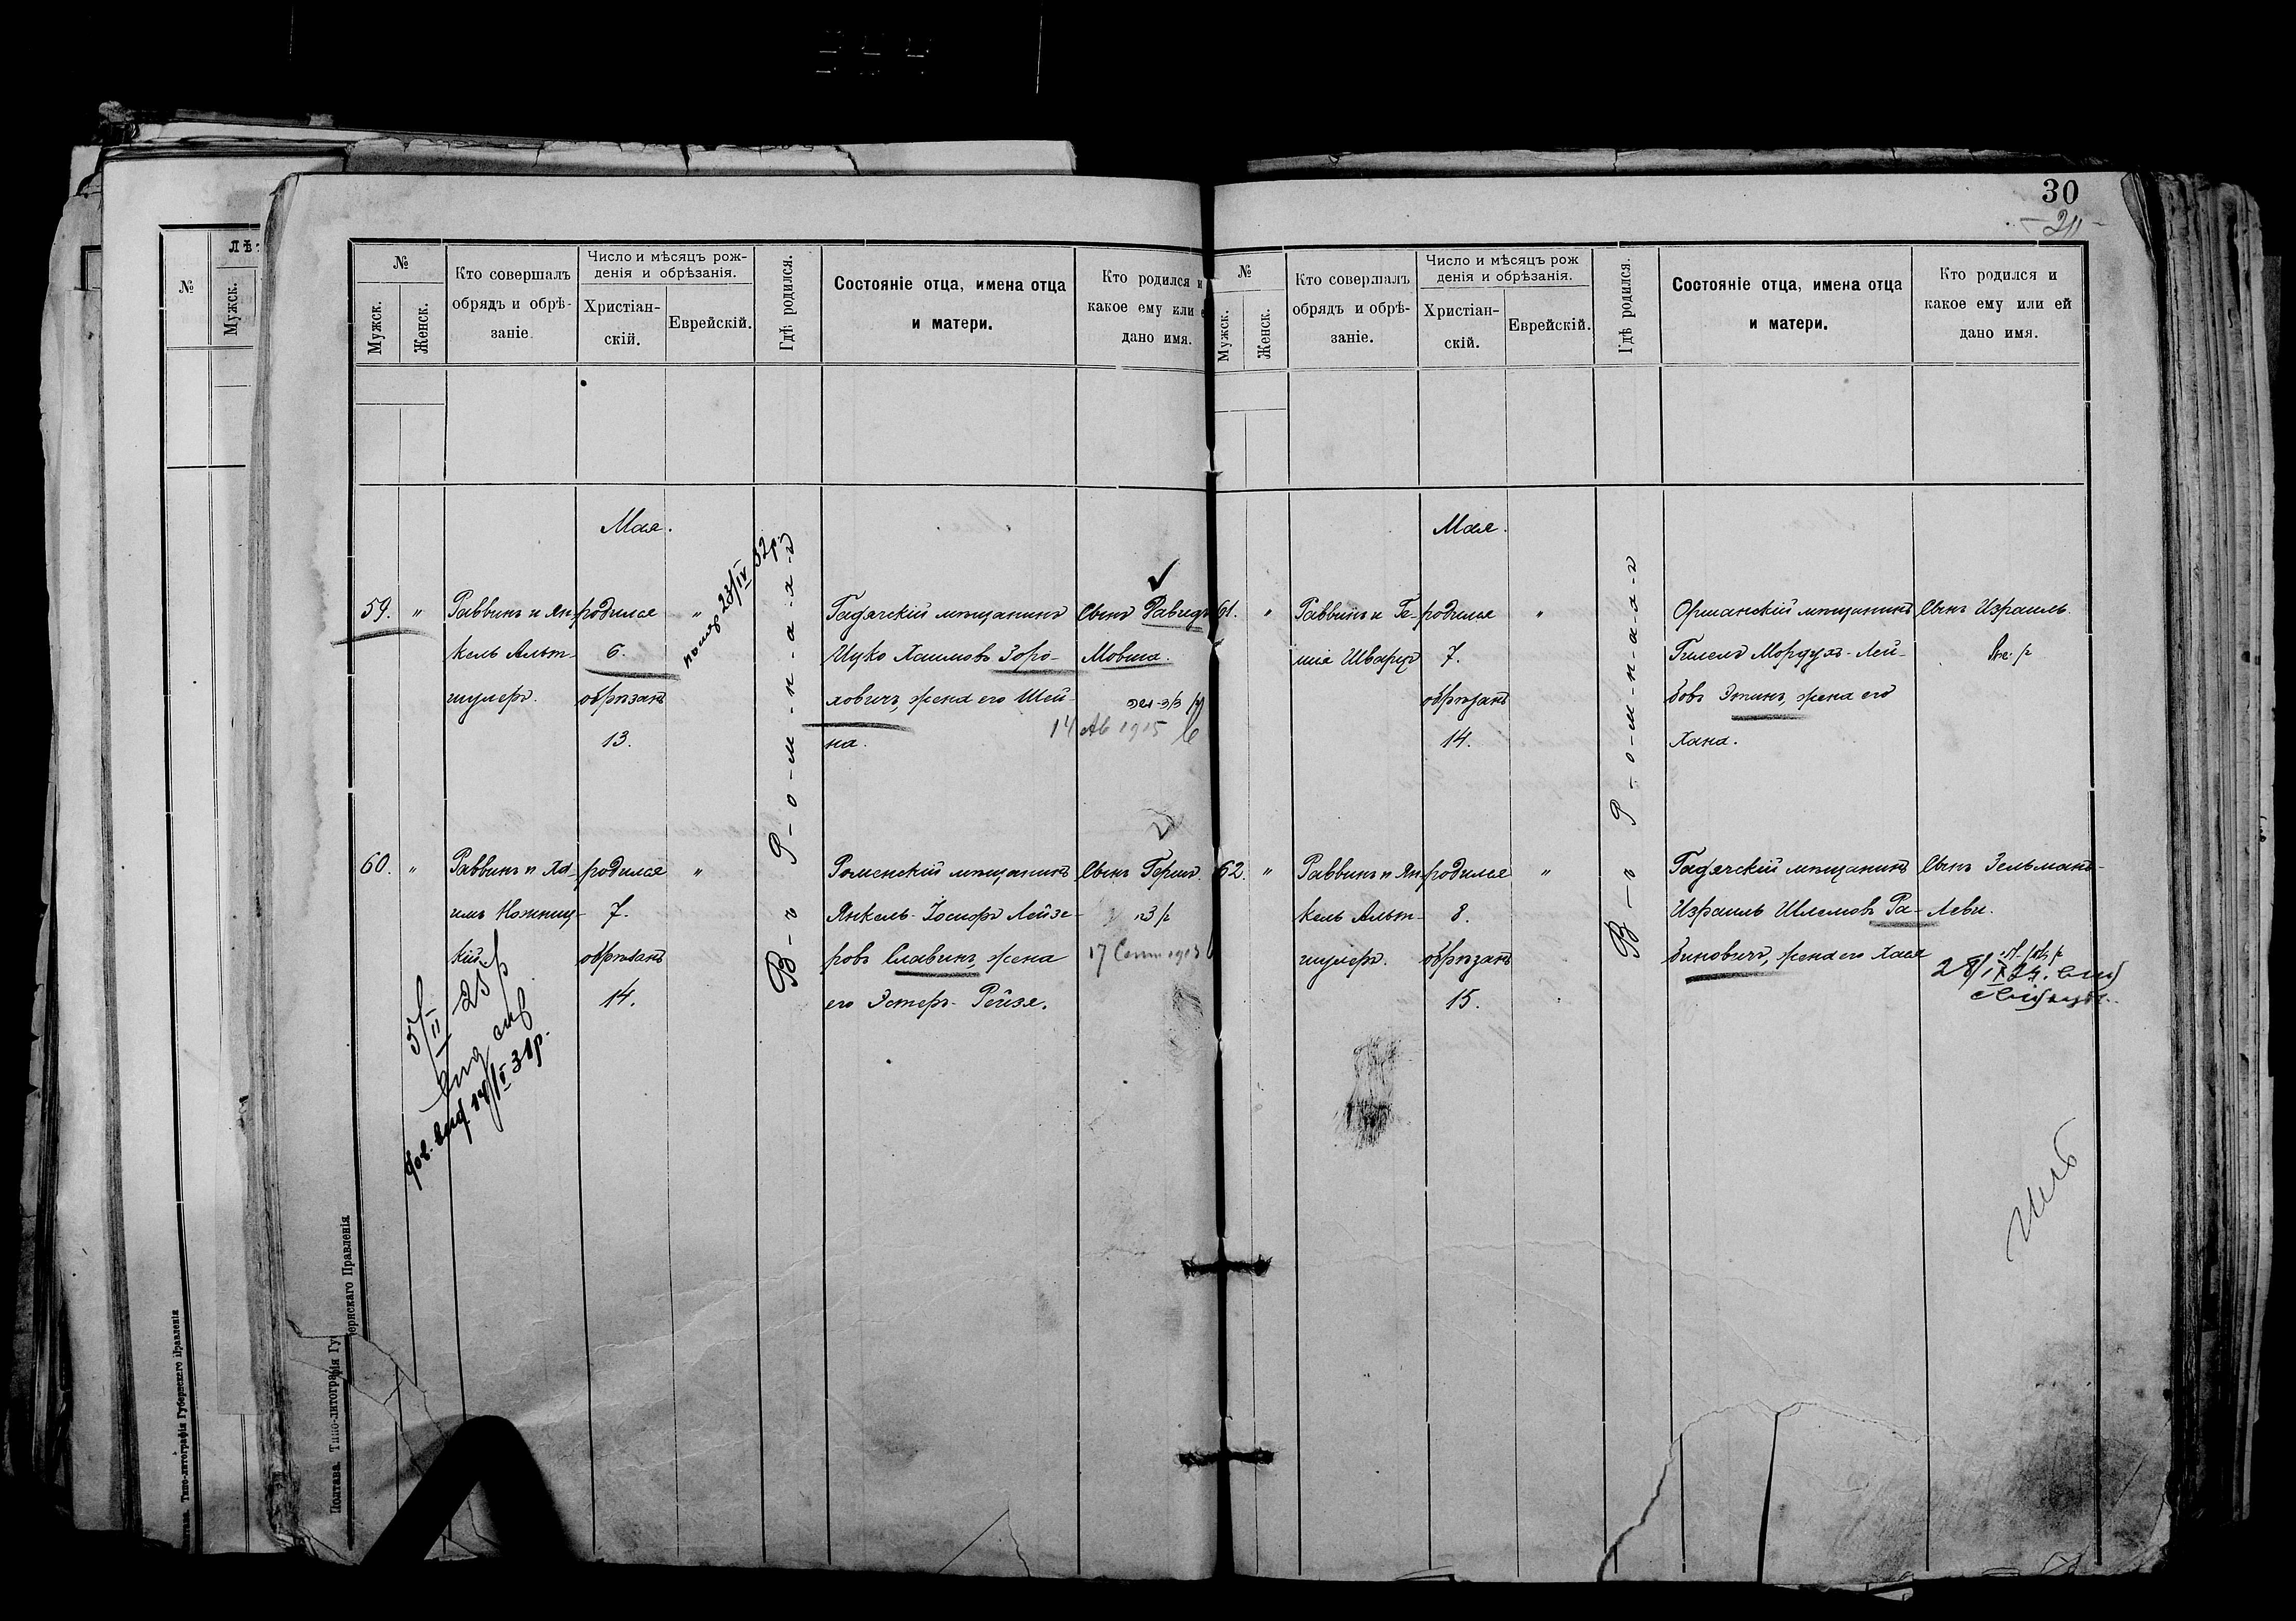 30
№
лѣ
Мужск.
№
Мужск.
Женск.
Кто совершалъ
обрядъ и обрѣ-
заніе.
Число и мѣсяцъ рож-
денія и обрѣзанія.
Христіан-
скій.
Еврейскій.
Гдѣ родился.
Состояніе отца, имена отца
и матери.
Кто родился и
какое ему или
дано имя.
Мая.
59.
"
Раввинъ и Ян-
кель Альт-
шулеръ.
родился
6.
обрѣзанъ
13.
"
23/IV 32р.
В-ъ Р-о-м-н-а-х-ъ
Гадячскій мѣщанинъ
Ицко Хаимовъ Зоро-
ховичъ, жена его Шей-
на.
Сынъ Давидъ
Мовша.
14 Ав 1915
60.
"
Раввинъ и Ха-
имъ Ножниц-
кій.
родился
7.
обрѣзанъ
14.
"
Роменскій мѣщанинъ
Янкель-Іосифъ Лейзе-
ровъ Славинъ, жена
его Эстеръ-Рейзя.
Сынъ Гершъ.
17 Сент 1913
5/II 25р
14/I 31р.
№
Мужск.
Женск.
Кто совершалъ
обрядъ и обрѣ-
заніе.
Число и мѣсяцъ рож
денія и обрѣзанія.
Христіан-
скій.
Еврейскій.
Гдѣ родился.
Состояніе отца, имена отца
и матери.
Кто родился и
какое ему или ей
дано имя.
Мая.
61.
"
Раввинъ и Ге-
шіа Шварцъ
родился
7.
обрѣзанъ
14.
"
В-ъ Р-о-м-н-а-х-ъ
Оршанскій мѣщанинъ
Гилелъ Мордухъ-Лей-
бовъ Этинъ, жена его
Хана.
Сынъ Израиль.
62.
"
Раввинъ и Ян-
кель Альт-
шулеръ.
родился
8.
обрѣзанъ
15.
"
Гадячскій мѣщанинъ
Израиль Шлемовъ Ра-
биновичъ, жена его Хася
Сынъ Зельманъ-
Леви.
Полтава. Типо-литографія Гу
ернскаго Правленія
Типо-литографія Губернскаго Правленія